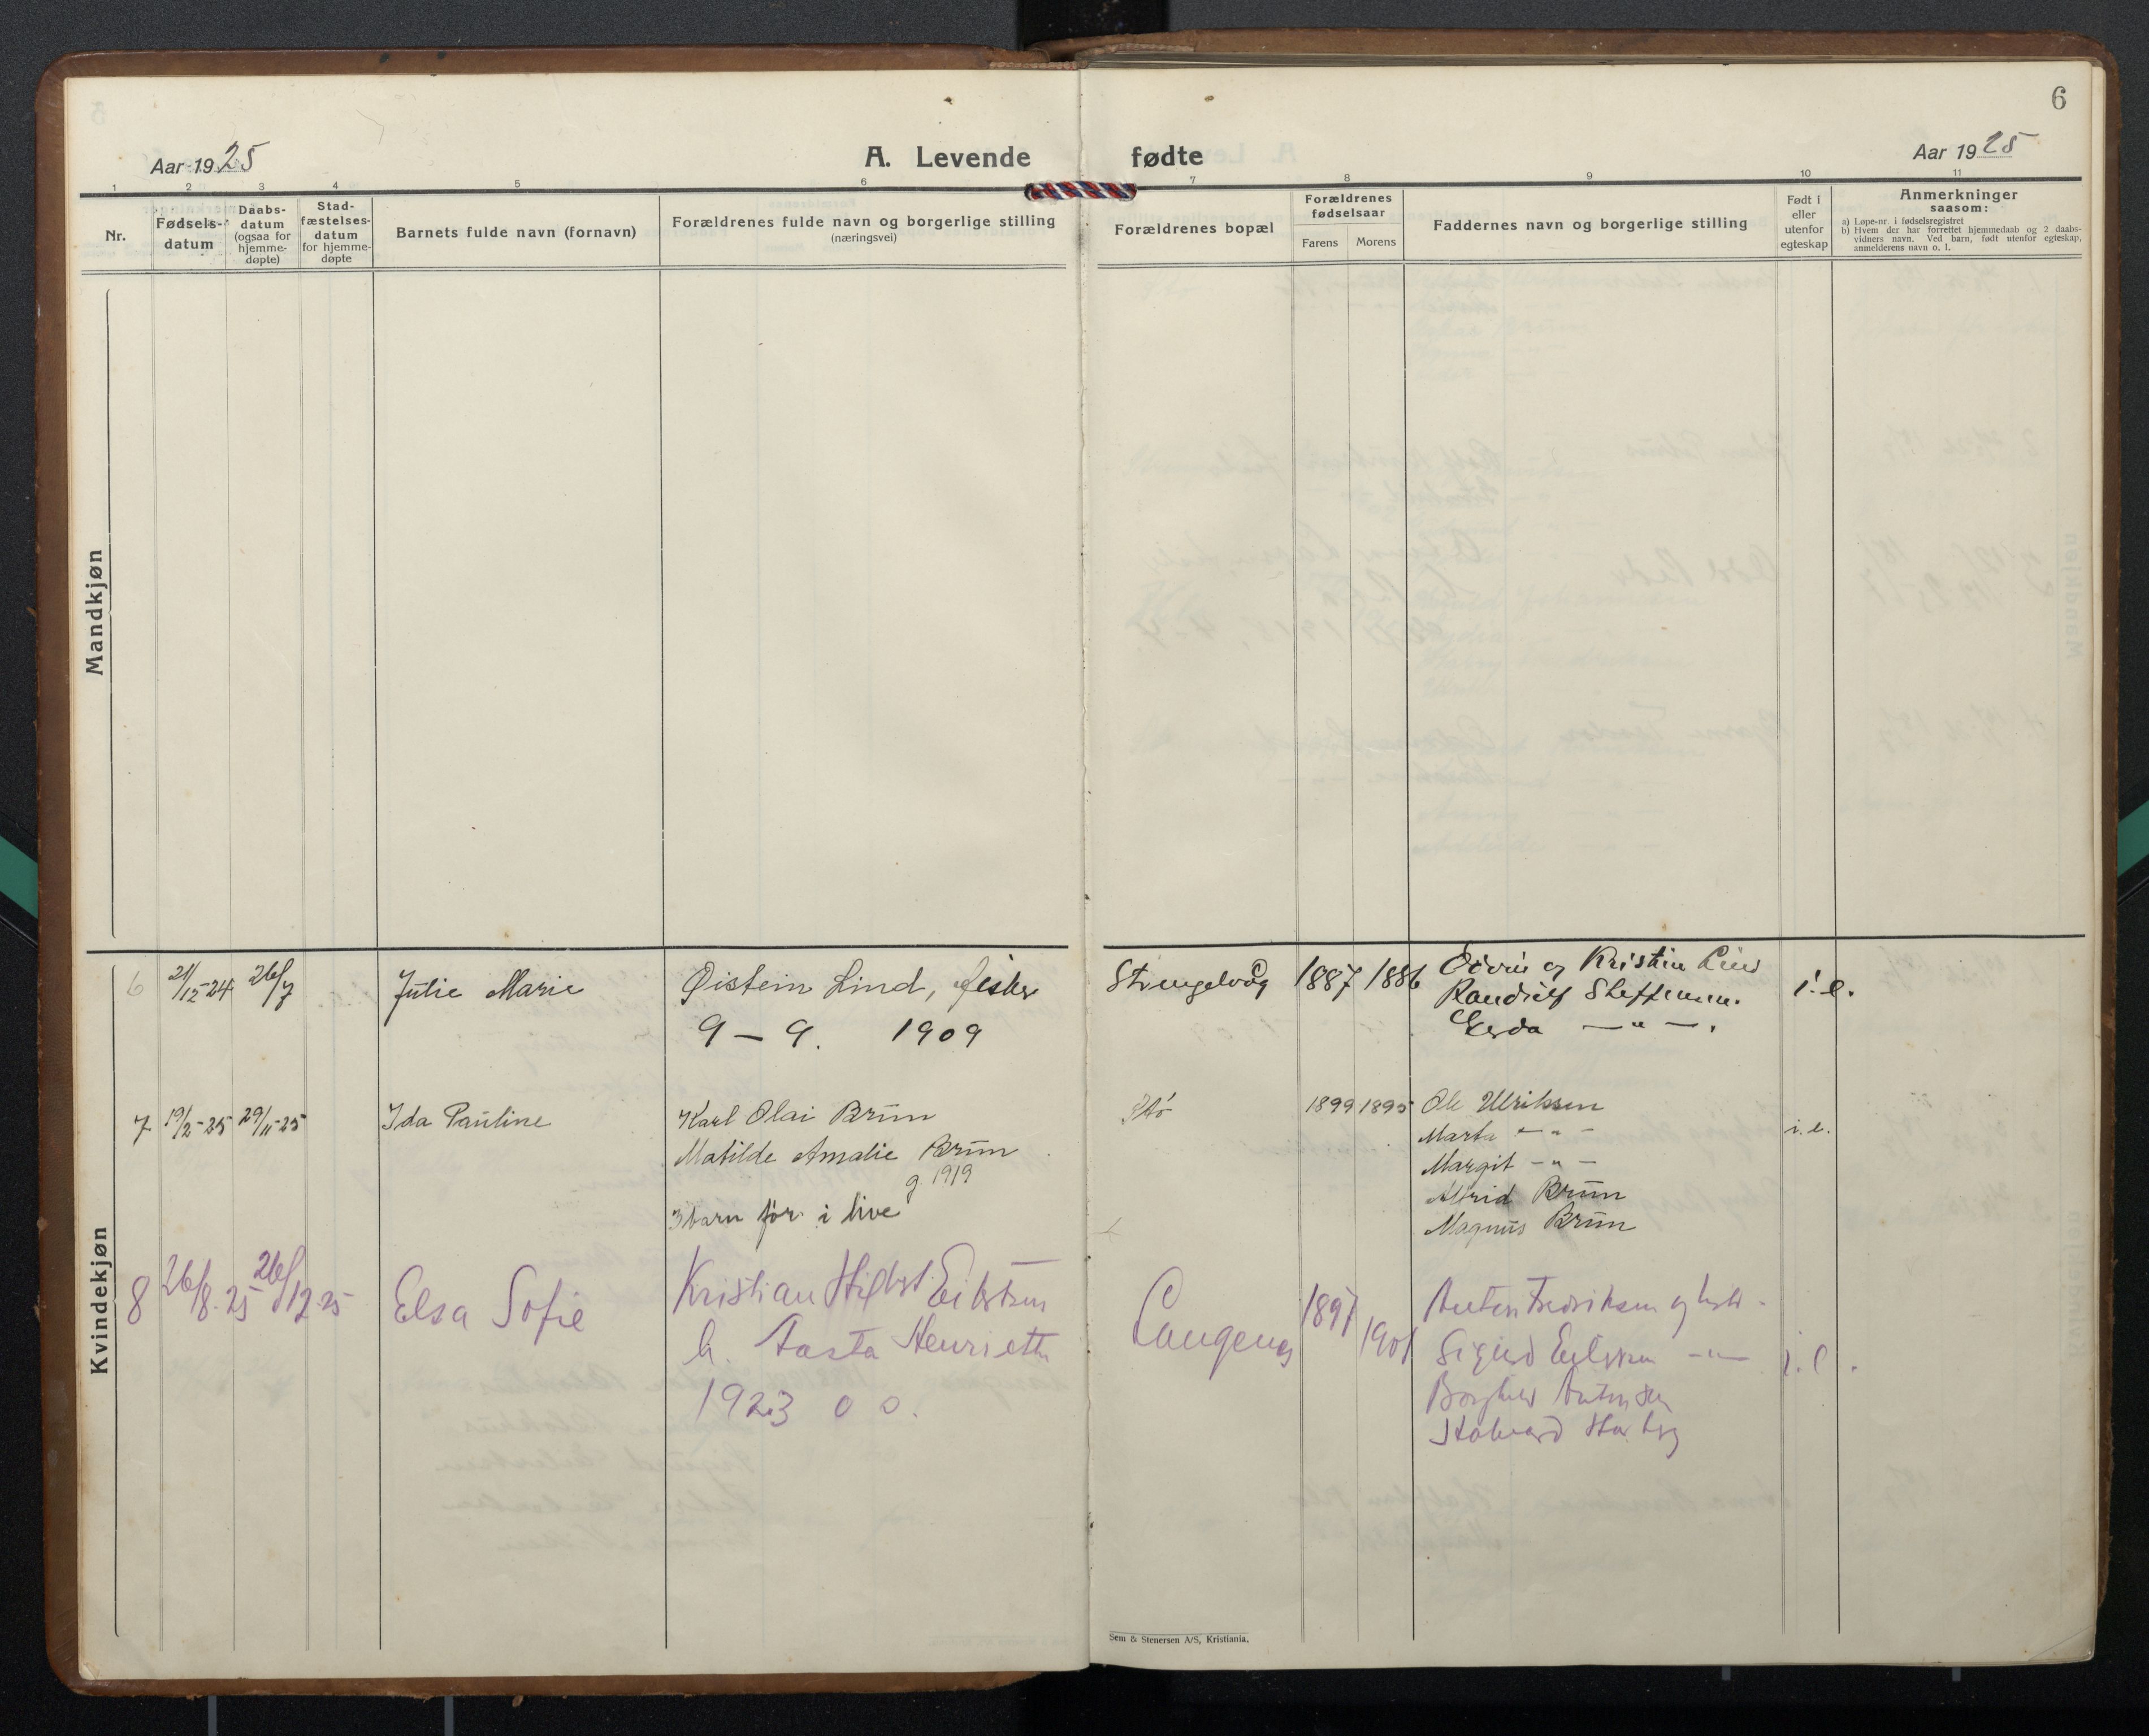 6
Aar 1925
A. Levende fødte
Aar 1925
1 2 3 4 5 6 7 8 9 10 11
Nr.
Fødsels-datum
Daabs-datum (ogsaa for hjemme-døpte)
Stad-fæstelses-datum for hjemme-døpte
Barnets fulde navn (fornavn)
Forældrenes fulde navn og borgerlige stilling
(næringsvei)
Forældrenes bopæl
Forældrenes fødselsaar
Farens Morens
Faddernes navn og borgerlige stilling
Født I eller utenfor egteskap
Anmerkninger
saasom:
a) Løpe-nr. i fødselsregistret
b) Hvem der har forrettet hjemmedaab og 2 daabs-
vidners navn. Ved barn, født utenfor egteskap,
anmelderens navn o. l.
Mandkjøn
Kvindekjøn
6 21/12-24 26/7 Julie Marie Øistein Lind, fisker
9 - 9. 1909
Stengelvåg 1887 1886
og Kristin Lind
Steffensen.
Gerda — " — .
i. e.
7 19/2-25 29/11-25 Ida Pauline Karl Olai Brun
Matilde Amalie Brun
g. 1919
3 barn før i live
Stø 1899 1895 Ole Ulriksen
Marta - " -
Margit - " -
Brun
Magnus Brun
i. e.
8 26/8.25 26/12.25 Elsa Sofie Kristian
h. Aasta Henriette
1923 0 0.
Langenes 1897 1901
Fredriksen og
Sigurd — " —
i. e.
Sem & Stenersen A/S, Kristiania.